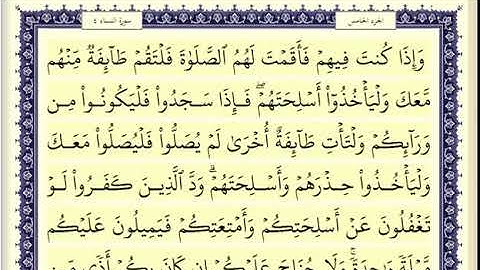 الجزء الخامس
سورة النساء ٤
وَإِذَا كُنتَ فِيهِمۡ فَأَقَمۡتَ لَهُمُ ٱلصَّلَوٰةَ فَلۡتَقُمۡ طَآئِفَةٞ مِّنۡهُم
مَّعَكَ وَلۡيَأۡخُذُوٓاْ أَسۡلِحَتَهُمۡۖ فَإِذَا سَجَدُواْ فَلۡيَكُونُواْ مِن
وَرَآئِكُمۡ وَلۡتَأۡتِ طَآئِفَةٌ أُخۡرَىٰ لَمۡ يُصَلُّواْ فَلۡيُصَلُّواْ مَعَكَ
وَلۡيَأۡخُذُواْ حِذۡرَهُمۡ وَأَسۡلِحَتَهُمۡۗ وَدَّ ٱلَّذِينَ كَفَرُواْ لَوۡ
تَغۡفُلُونَ عَنۡ أَسۡلِحَتِكُمۡ وَأَمۡتِعَتِكُمۡ فَيَمِيلُونَ عَلَيۡكُم
مَّيۡلَةٗ وَٰحِدَةٗۚ وَلَا جُنَاحَ عَلَيۡكُمۡ إِن كَانَ بِكُمۡ أَذٗى مِّن